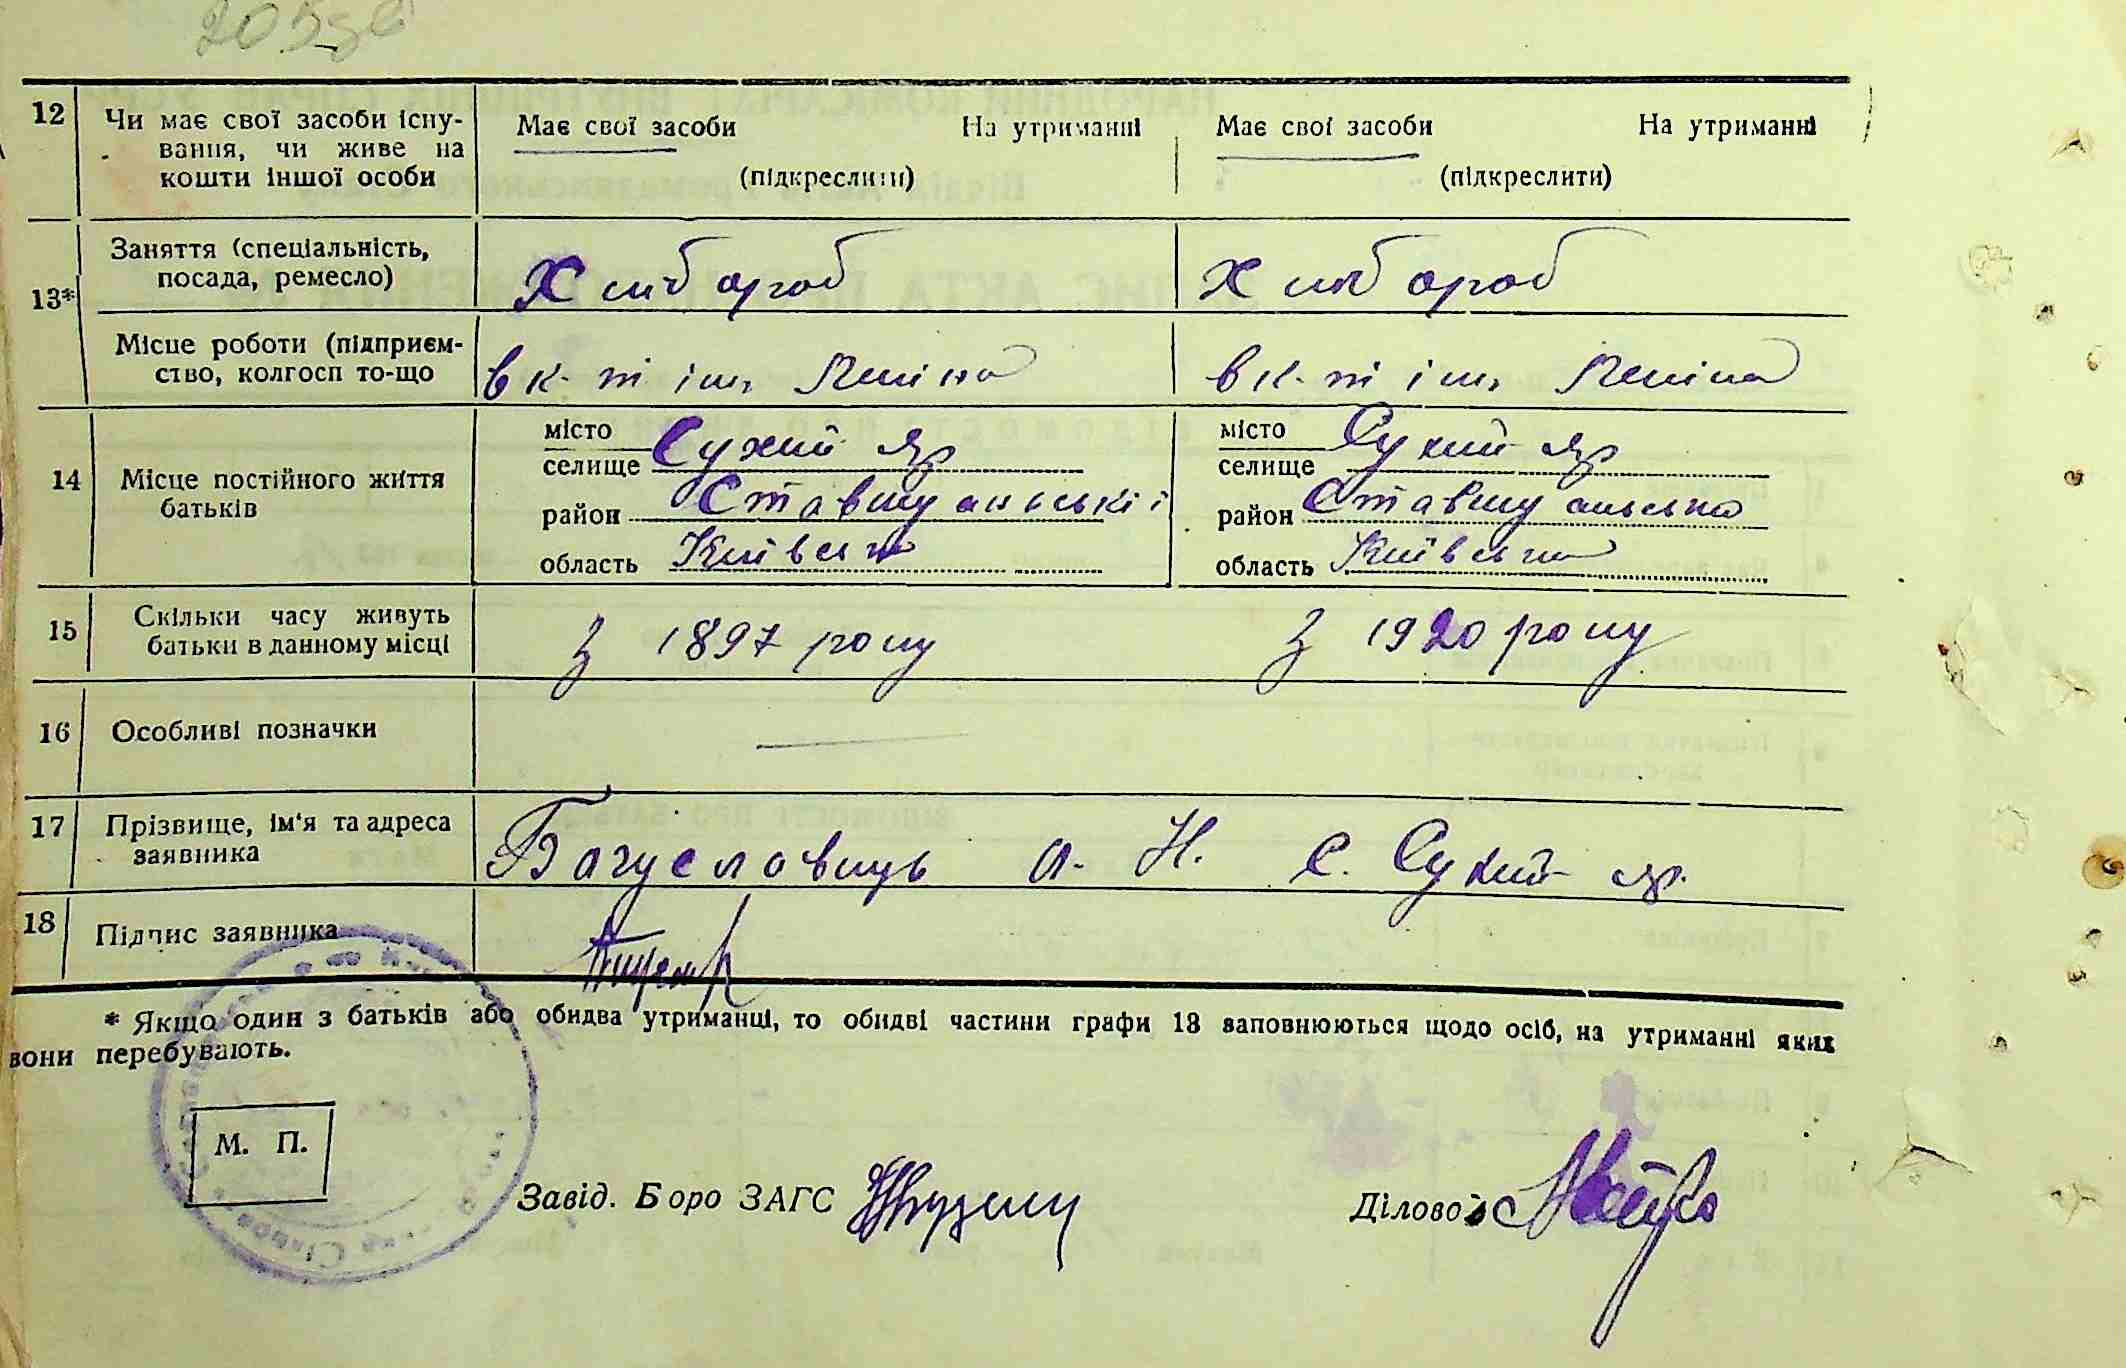 12 Чи має свої засоби існу-
вання, чи живе на
кошти іншої особи
Має свої засоби На утриманні
(підкреслити)
Має свої засоби На утриманні
(підкреслити)
13* Заняття (спеціальність,
посада, ремесло)
Хліб ороб
Хліб ороб
Місце роботи (підприєм-
ство, колгосп то-що
в к-ті ім. Леніна
в к-ті ім. Леніна
14 Місце постійного життя
батьків
місто
селище Сухий яр
район Ставищанський
область Київська
місто
селище Сухий яр
район Ставищанська
область Київська
15 Скільки часу живуть
батьки в данному місці
З 1897 року
З 1920 року
16 Особливі позначки —
17 Прізвище, ім'я та адреса
заявника
Богуславець А. Н. С. Сухий яр.
18 Підпис заявника
* Якщо один з батьків або обидва утриманці, то обидві частини графи 13 заповнюються щодо осіб, на утриманні яких
вони перебувають.
М. П.
Завід. Бюро ЗАГС
Діловод